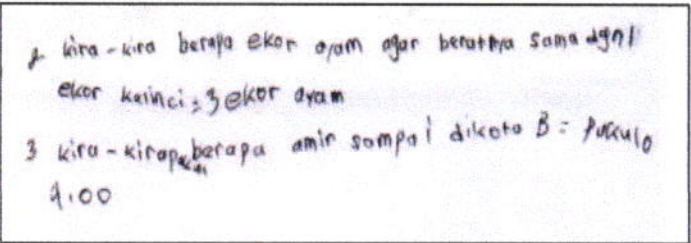 2 kira-kira berapa ekor ayam agar beratnya sama dgn 1
ekor kelinci = 3 ekor ayam
3 kira-kira berapa amir sampai dikota B = Pukulo
9.00